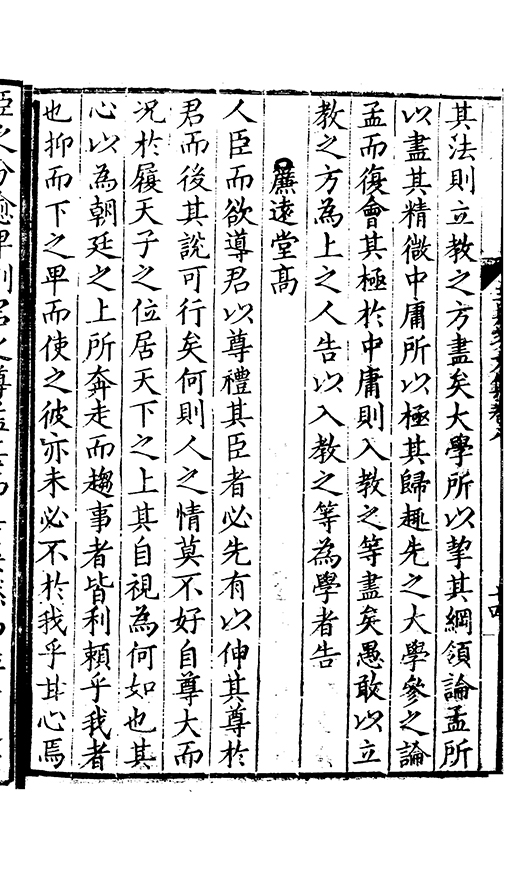 其法則立教之方盡矣大學所以挈其綱領論孟所
以盡其精微中庸所以極其歸趣先之大學參之論
孟而復會其極於中庸則入教之等盡矣愚敢以立
教之方為上之人告以入教之等為學者告
廉遠堂高
人臣而欲導君以尊禮其臣者必先有以伸其尊於
君而後其說可行矣何則人之情莫不好自尊大而
况於履天子之位居天下之上其自視為何如也其
心以為朝廷之上所奔走而趨事者皆利賴乎我者
也抑而下之卑而使之彼亦未必不於我乎甘心焉
臣之分愈卑則君之尊